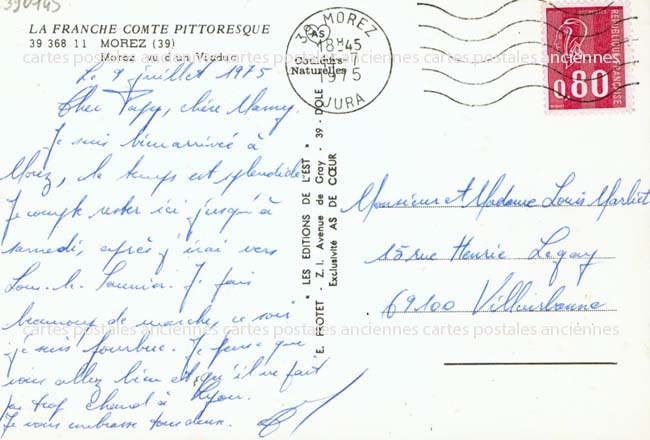 390145
LA FRANCHE COMTE PITTORESQUE
39 368 11 MOREZ (39)
Morez vu d'un Viaduc
Le 9 juillet 1975
Cher Papy, chère Mamy,
Je suis bien arrivée à
Morez, le temps est splendide
Je compte rester ici jusqu'à
samedi, après j'irai vers
Lons-le-Saunier. Je fais
beaucoup de marche, ce soir
je suis fourbue. Je pense que
vous allez bien et qu'il ne fait
pas trop chaud à Lyon.
Je vous embrasse tous deux.
39 MOREZ
18H45
-7
1975
JURA
Naturelles
REPUBLIQUE FRANCAISE
0,80
"LES EDITIONS DE L'EST"
E. PROTET - Z.I. Avenue de Gray - 39 - DOLE
Exclusivité AS DE CŒUR
Monsieur et Madame Louis
15 rue Henri Legay
69100 Villeurbanne
cartes postales anciennes cartes postales anciennes cartes postales anciennes